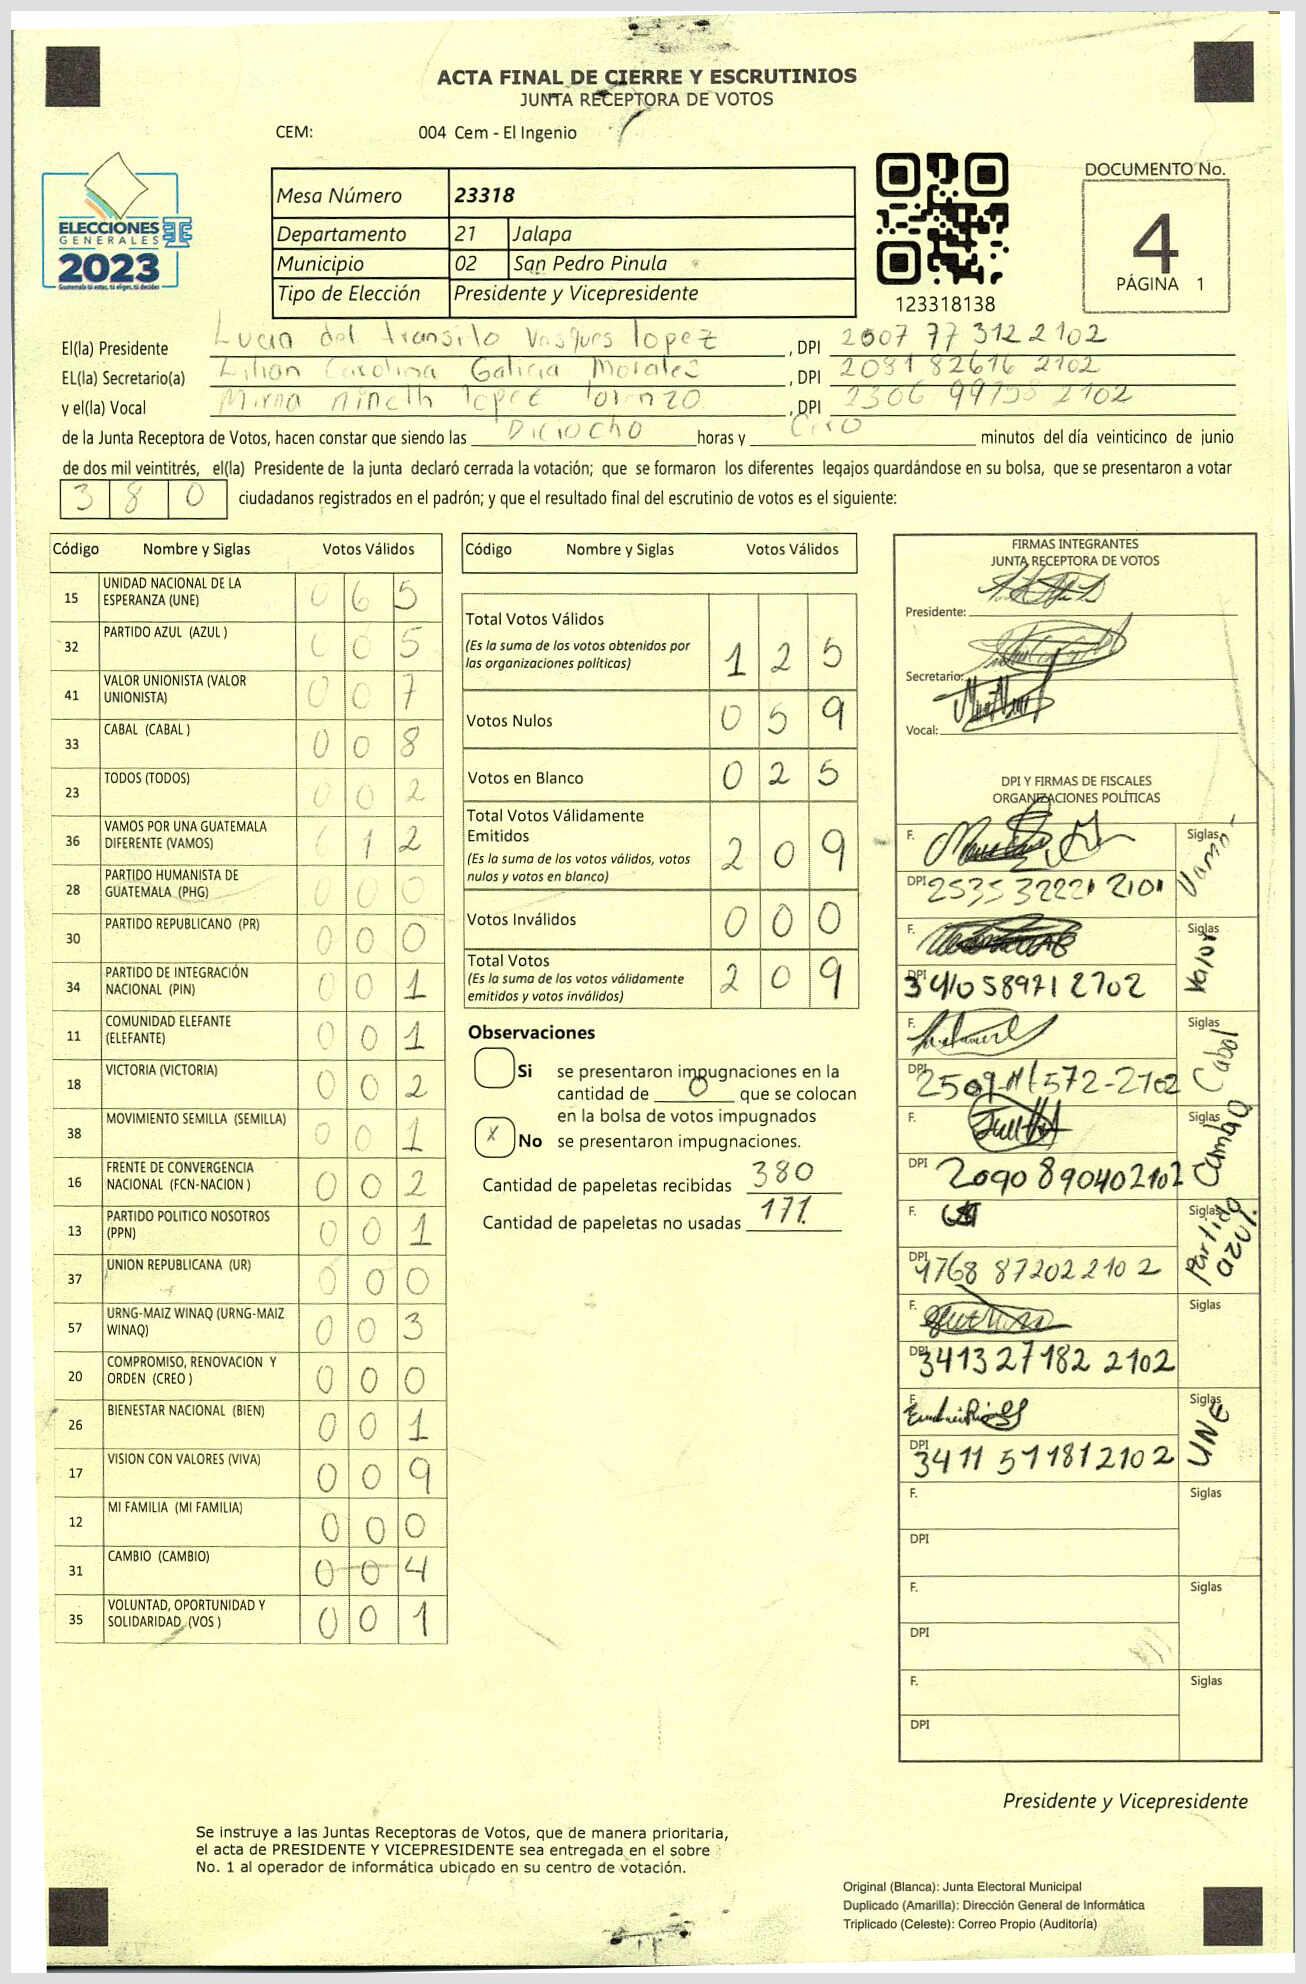 ACTA FINAL DE CIERRE Y ESCRUTINIOS
JUNTA RECEPTORA DE VOTOS
CEM: 004 Cem - El Ingenio
ELECCIONES
GENERALES
2023
Guatemala tú estas, tú eliges, tú decides
Mesa Número 23318
Departamento 21 Jalapa
Municipio 02 San Pedro Pinula
Tipo de Elección Presidente y Vicepresidente
123318138
DOCUMENTO No.
4
PÁGINA 1
El(la) Presidente Lucia del transito Vasques lopez , DPI 2507 77 312 2102
EL(la) Secretario(a) Lilian Carolina Galicia Morales , DPI 2091 82616 2102
y el(la) Vocal Mirna mineth lopez lorenzo , DPI 2306 99758 2102
de la Junta Receptora de Votos, hacen constar que siendo las Diciocho horas y Cero minutos del día veinticinco de junio
de dos mil veintitrés, el(la) Presidente de la junta declaró cerrada la votación; que se formaron los diferentes legajos quardándose en su bolsa, que se presentaron a votar
380 ciudadanos registrados en el padrón; y que el resultado final del escrutinio de votos es el siguiente:
Código Nombre y Siglas Votos Válidos
15 UNIDAD NACIONAL DE LA ESPERANZA (UNE) 065
32 PARTIDO AZUL (AZUL ) 005
41 VALOR UNIONISTA (VALOR UNIONISTA) 007
33 CABAL (CABAL ) 008
23 TODOS (TODOS) 002
36 VAMOS POR UNA GUATEMALA DIFERENTE (VAMOS) 012
28 PARTIDO HUMANISTA DE GUATEMALA (PHG) 000
30 PARTIDO REPUBLICANO (PR) 000
34 PARTIDO DE INTEGRACIÓN NACIONAL (PIN) 001
11 COMUNIDAD ELEFANTE (ELEFANTE) 001
18 VICTORIA (VICTORIA) 002
38 MOVIMIENTO SEMILLA (SEMILLA) 001
16 FRENTE DE CONVERGENCIA NACIONAL (FCN-NACION ) 002
13 PARTIDO POLITICO NOSOTROS (PPN) 001
37 UNION REPUBLICANA (UR) 000
57 URNG-MAIZ WINAQ (URNG-MAIZ WINAQ) 003
20 COMPROMISO, RENOVACION Y ORDEN (CREO ) 000
26 BIENESTAR NACIONAL (BIEN) 001
17 VISION CON VALORES (VIVA) 009
12 MI FAMILIA (MI FAMILIA) 000
31 CAMBIO (CAMBIO) 004
35 VOLUNTAD, OPORTUNIDAD Y SOLIDARIDAD (VOS ) 001
Código Nombre y Siglas Votos Válidos
Total Votos Válidos 125
(Es la suma de los votos obtenidos por
las organizaciones políticas)
Votos Nulos 059
Votos en Blanco 025
Total Votos Válidamente
Emitidos 209
(Es la suma de los votos válidos, votos
nulos y votos en blanco)
Votos Inválidos 000
Total Votos 209
(Es la suma de los votos válidamente
emitidos y votos inválidos)
Observaciones
Si se presentaron impugnaciones en la
cantidad de 0 que se colocan
en la bolsa de votos impugnados
X No se presentaron impugnaciones.
Cantidad de papeletas recibidas 380
Cantidad de papeletas no usadas 171
FIRMAS INTEGRANTES
JUNTA RECEPTORA DE VOTOS
Presidente:
Secretario:
Vocal:
DPI Y FIRMAS DE FISCALES
ORGANIZACIONES POLÍTICAS
F. Siglas Vamos
DPI 2535 32221 2101
F. Siglas Valor
DPI 341058971 2702
F. Siglas Cabal
DPI
F. Siglas Cambio
DPI 2090 890402102
F. Siglas Partido azul
DPI 1768 87202 2102
F. Siglas
DPI 341327182 2102
F. Siglas UNE
DPI 3411 511812102
F. Siglas
DPI
F. Siglas
DPI
F. Siglas
DPI
Presidente y Vicepresidente
Se instruye a las Juntas Receptoras de Votos, que de manera prioritaria,
el acta de PRESIDENTE Y VICEPRESIDENTE sea entregada en el sobre
No. 1 al operador de informática ubicado en su centro de votación.
Original (Blanca): Junta Electoral Municipal
Duplicado (Amarilla): Dirección General de Informática
Triplicado (Celeste): Correo Propio (Auditoría)